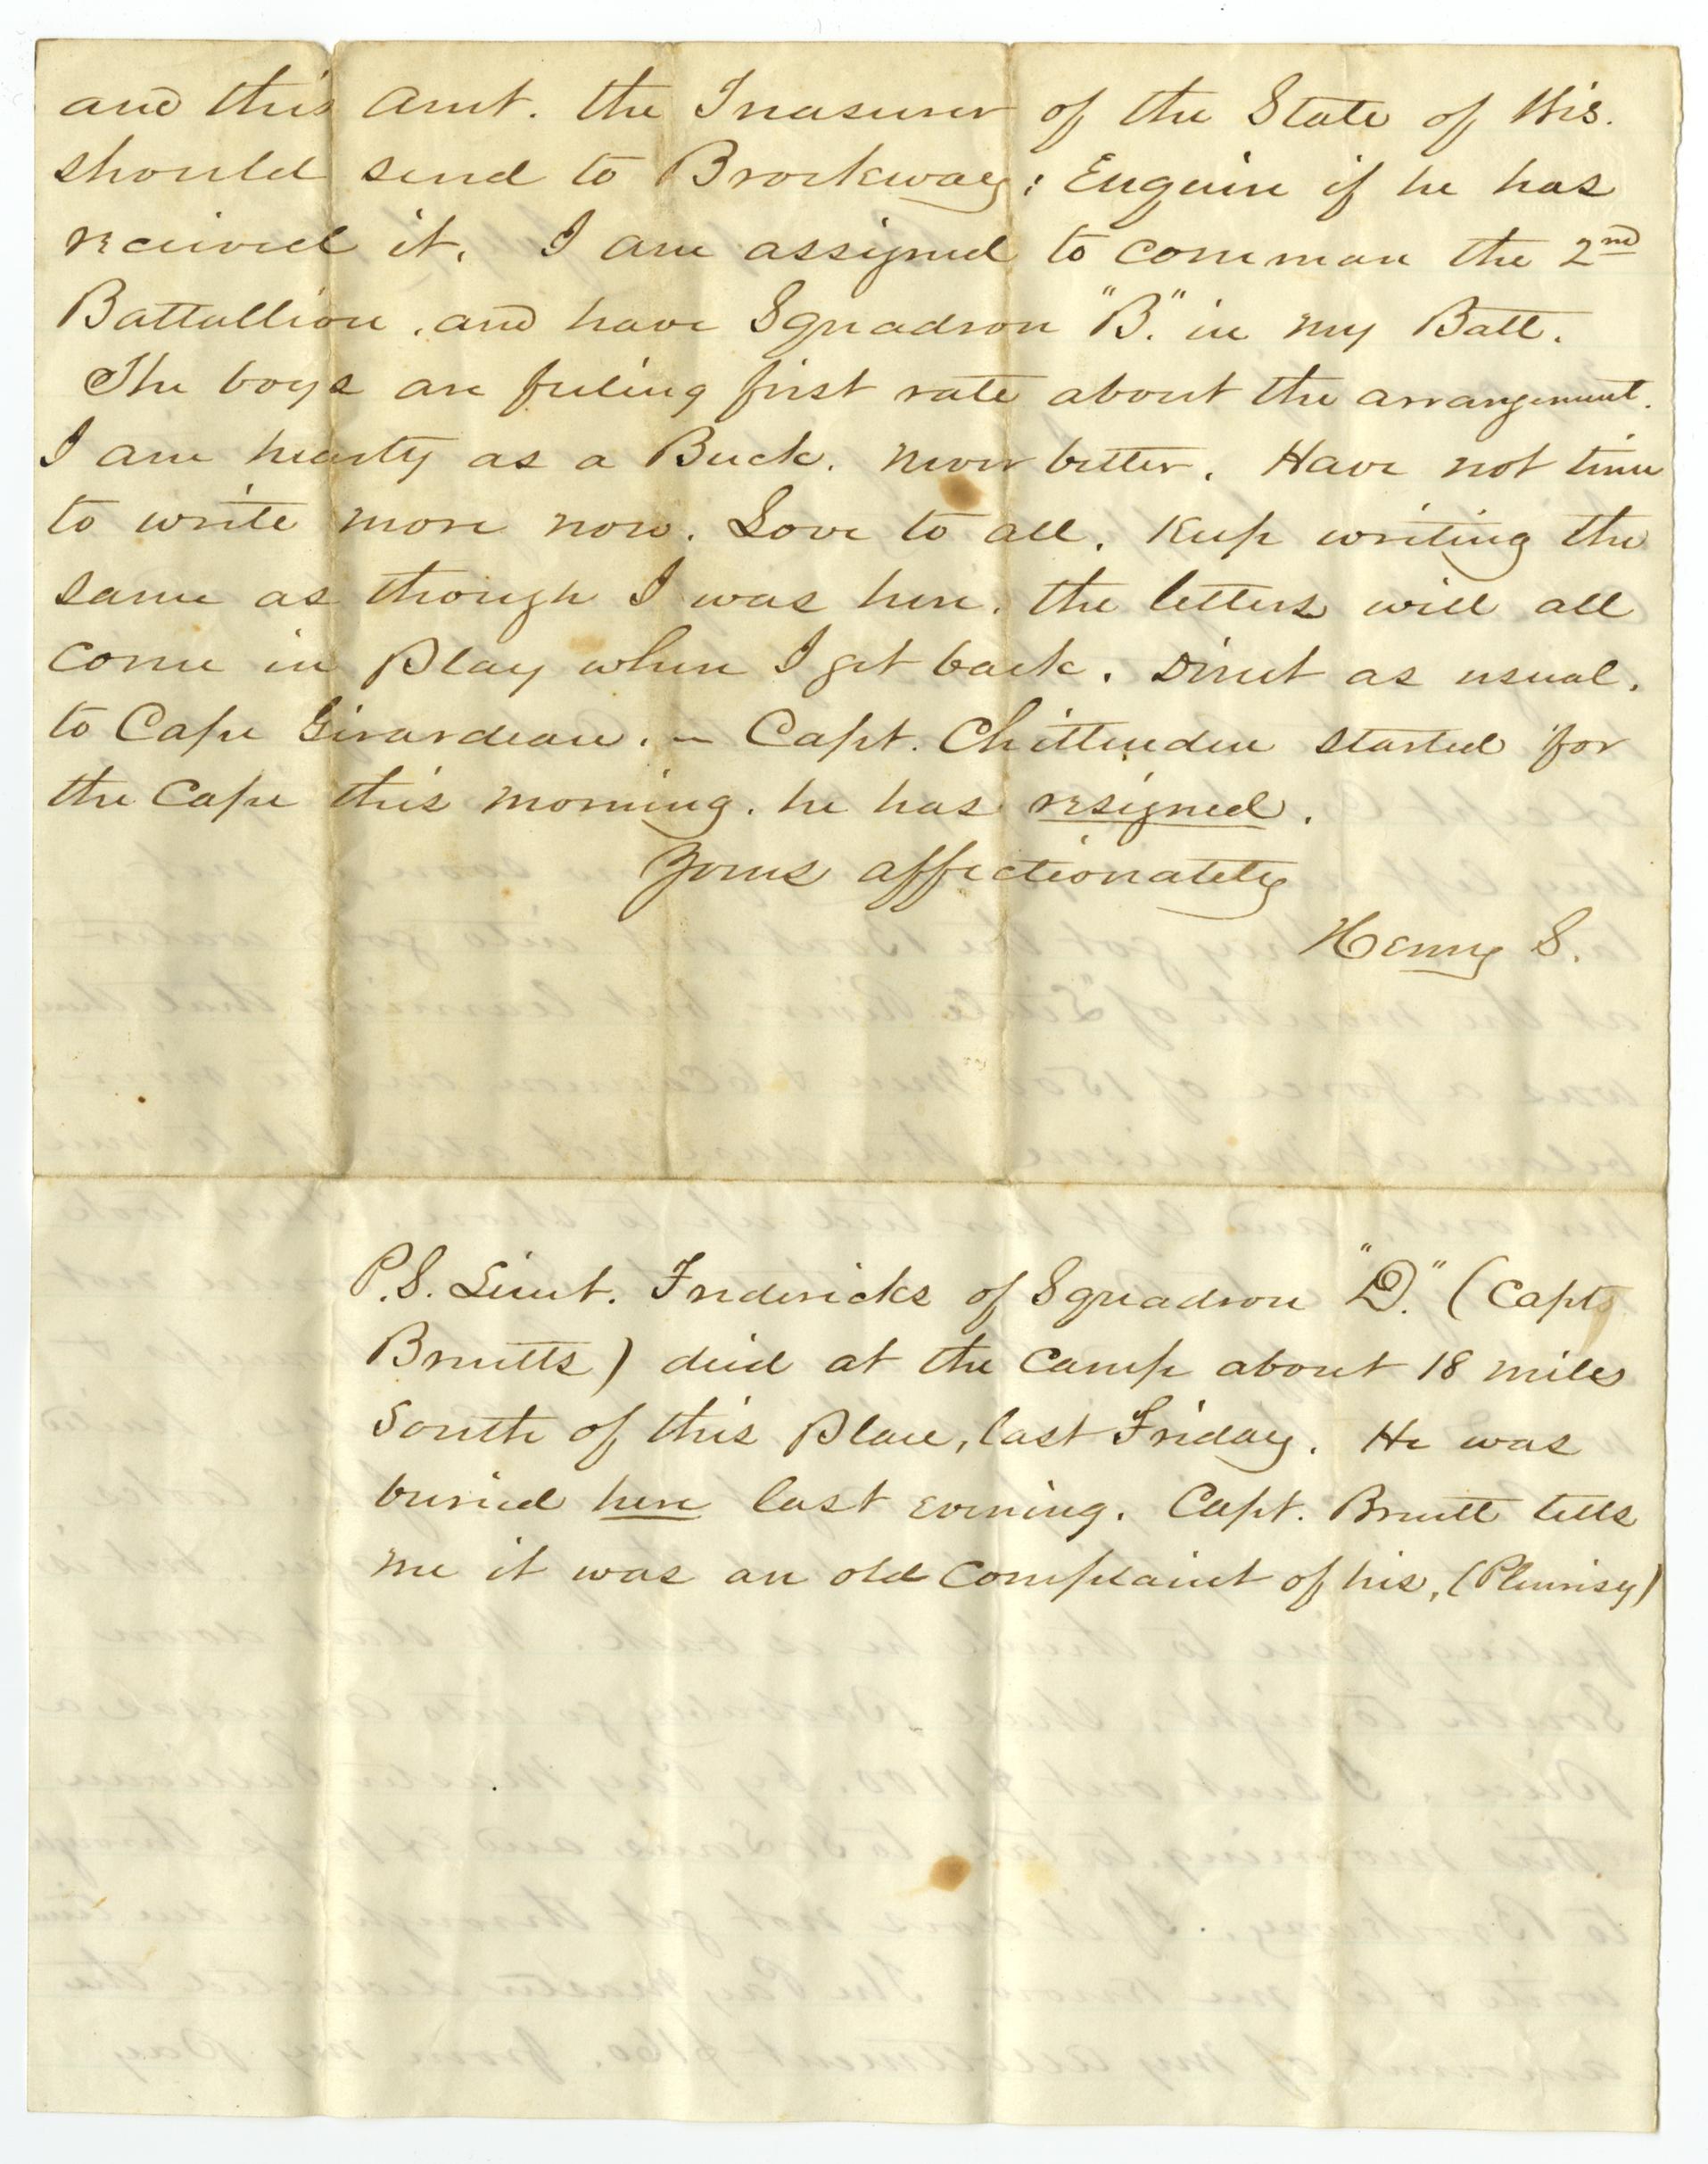 and this Amt. the Treasurer of the State of Wis.
should send to Brockway; Enquire if he has
received it. I am assigned to comman the 2nd
Battallion, and have Squadron "B." in my Batt.
The boys are feeling first rate about the arrangement.
I am hearty as a Buck. never better. Have not time
to write more now. Love to all. Keep writing the
same as though I was here. the letters will all
come in Play when I get back. Direct as usual.
to Cape Girardeau. - Capt. Chittenden started for
the Cape this morning. he has resigned.
Yours affectionately
Henry S.
P.S. Lieut. Fredericks of Squadron "D." (Capts
Bruetts) died at the Camp about 18 miles
South of this Place, last Friday. He was
buried here last evening. Capt. Bruett tells
me it was an old Complaint of his, (Pleurisy)